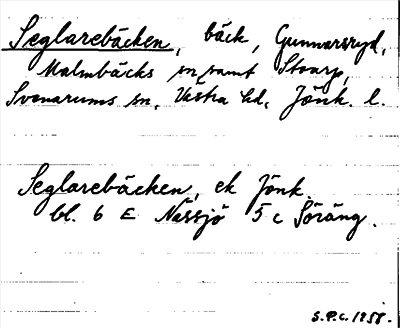 Seglarebäcken, bäck, Gunnarsryd,
Malmbäcks sn samt Stoarp,
Svenarums sn, Västra hd, Jönk. l.
Seglarebäcken, ek Jönk.
bl. 6 E Nässjö 5 c Söräng.
S.P.C. 1958.